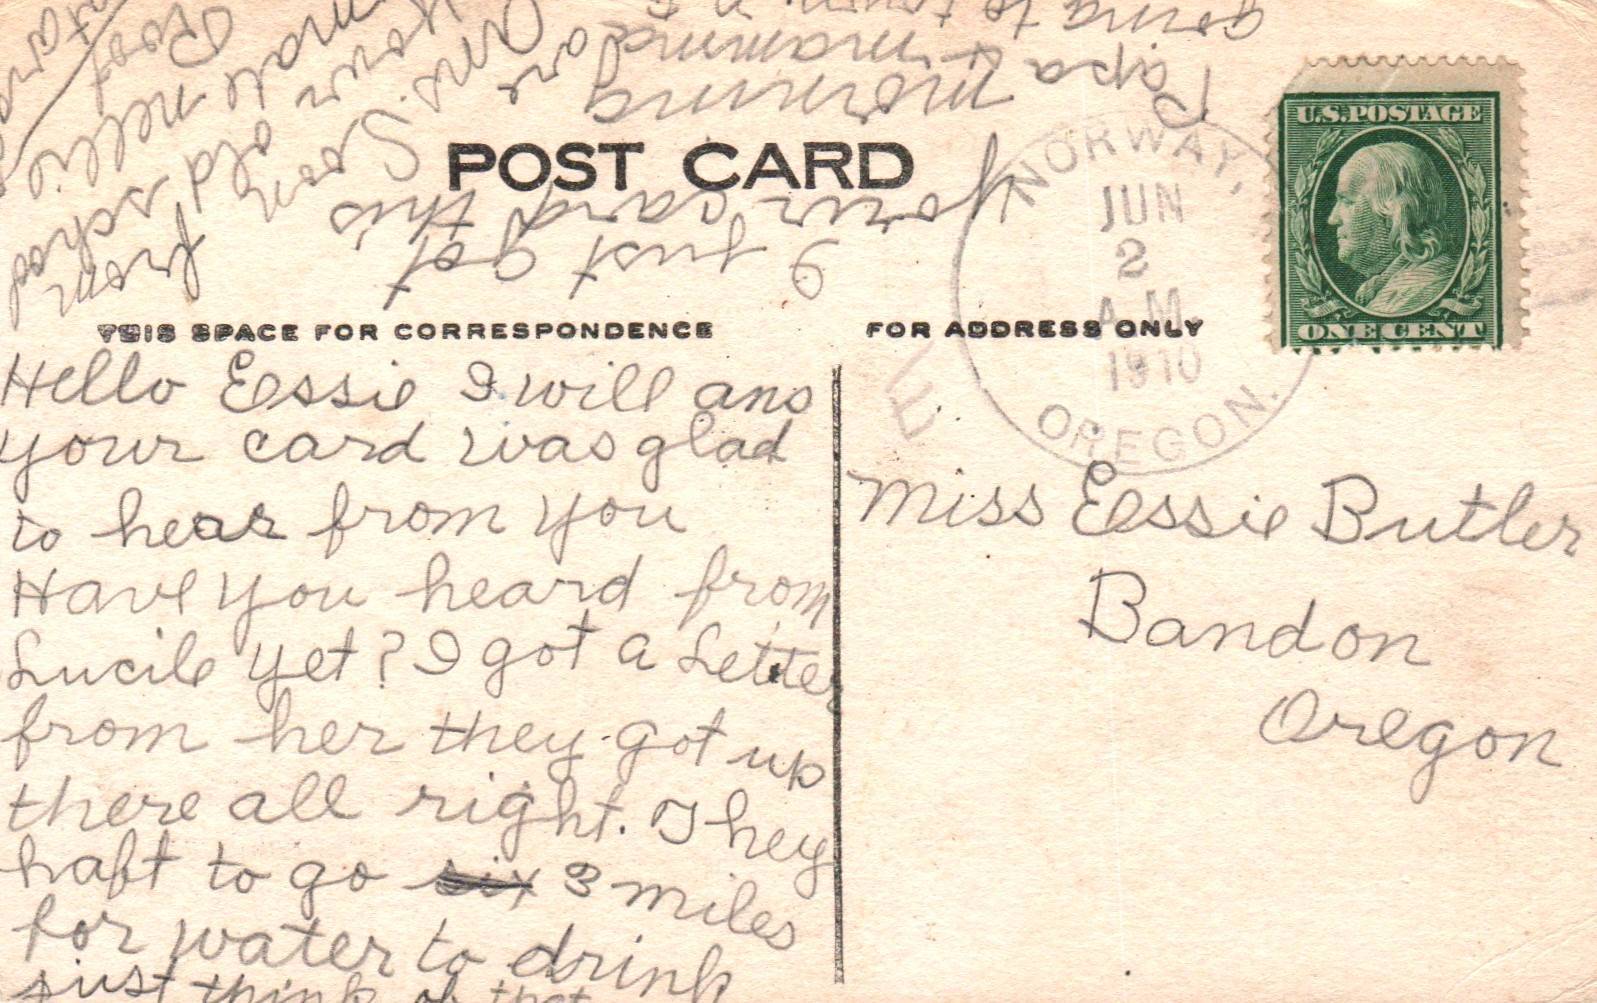 POST CARD
THIS SPACE FOR CORRESPONDENCE
FOR ADDRESS ONLY
U.S. POSTAGE
ONE CENT
NORWAY,
JUN
2
A.M.
1910
OREGON.
Hello Essie I will ans
your card was glad
to hear from you
Have you heard from
Lucile yet? I got a Letter
from her they got up
there all right. They
haft to go six 3 miles
for water to drink
just think of that
Miss Essie Butler
Bandon
Oregon
I just got
your card this
morning
Papa & mamma
are
going to town
Ans. Soon
from
your old school
ma
nellie